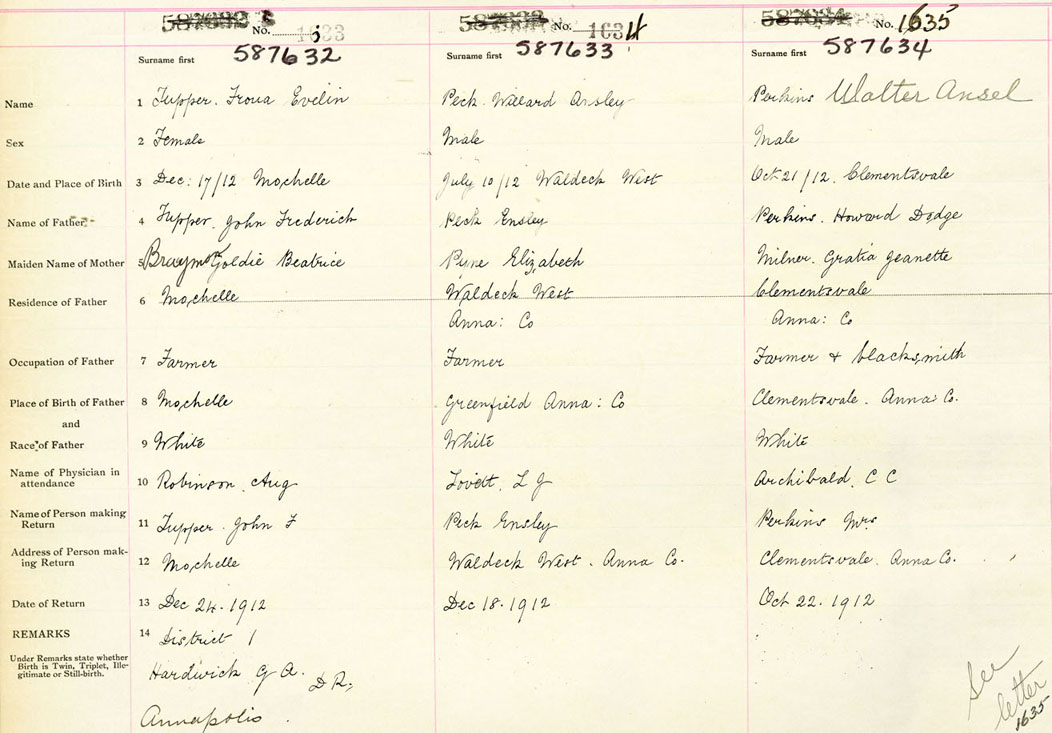 No. 1633 No. 1634 No. 1635
587632 587633 587634
Surname first Surname first Surname first
Name 1 Tupper. Evelin Peck. Willard Ansley Perkins Walter Ansel
Sex 2 Female Male Male
Date and Place of Birth 3 Dec: 17/12 Mochelle July 10/12 Waldeck West Oct 21/12. Clementsvale
Name of Father 4 Tupper. John Frederick Peck Ensley Perkins. Howard Dodge
Maiden Name of Mother 5 Goldie Beatrice Pyne Elizabeth Milner. Gratia Jeanette
Residence of Father 6 Mochelle Waldeck West Clementsvale
Anna: Co Anna: Co
Occupation of Father 7 Farmer Farmer Farmer & blacksmith
Place of Birth of Father 8 Mochelle Greenfield Anna: Co Clementsvale. Anna Co.
and
Race of Father 9 White White White
Name of Physician in
attendance 10 Robinson, Aug Lovett, L J Archibald, C C
Name of Person making
Return 11 Tupper. John F Peck Ensley Perkins Mrs
Address of Person mak-
ing Return 12 Mochelle Waldeck West. Anna Co. Clementsvale. Anna Co.
Date of Return 13 Dec 24. 1912 Dec 18. 1912 Oct 22. 1912
REMARKS 14 District 1
Under Remarks state whether
Birth is Twin, Triplet, Ille-
gitimate or Still-birth.
Hardwick G A. D R,
Annapolis.
See
letter
1635